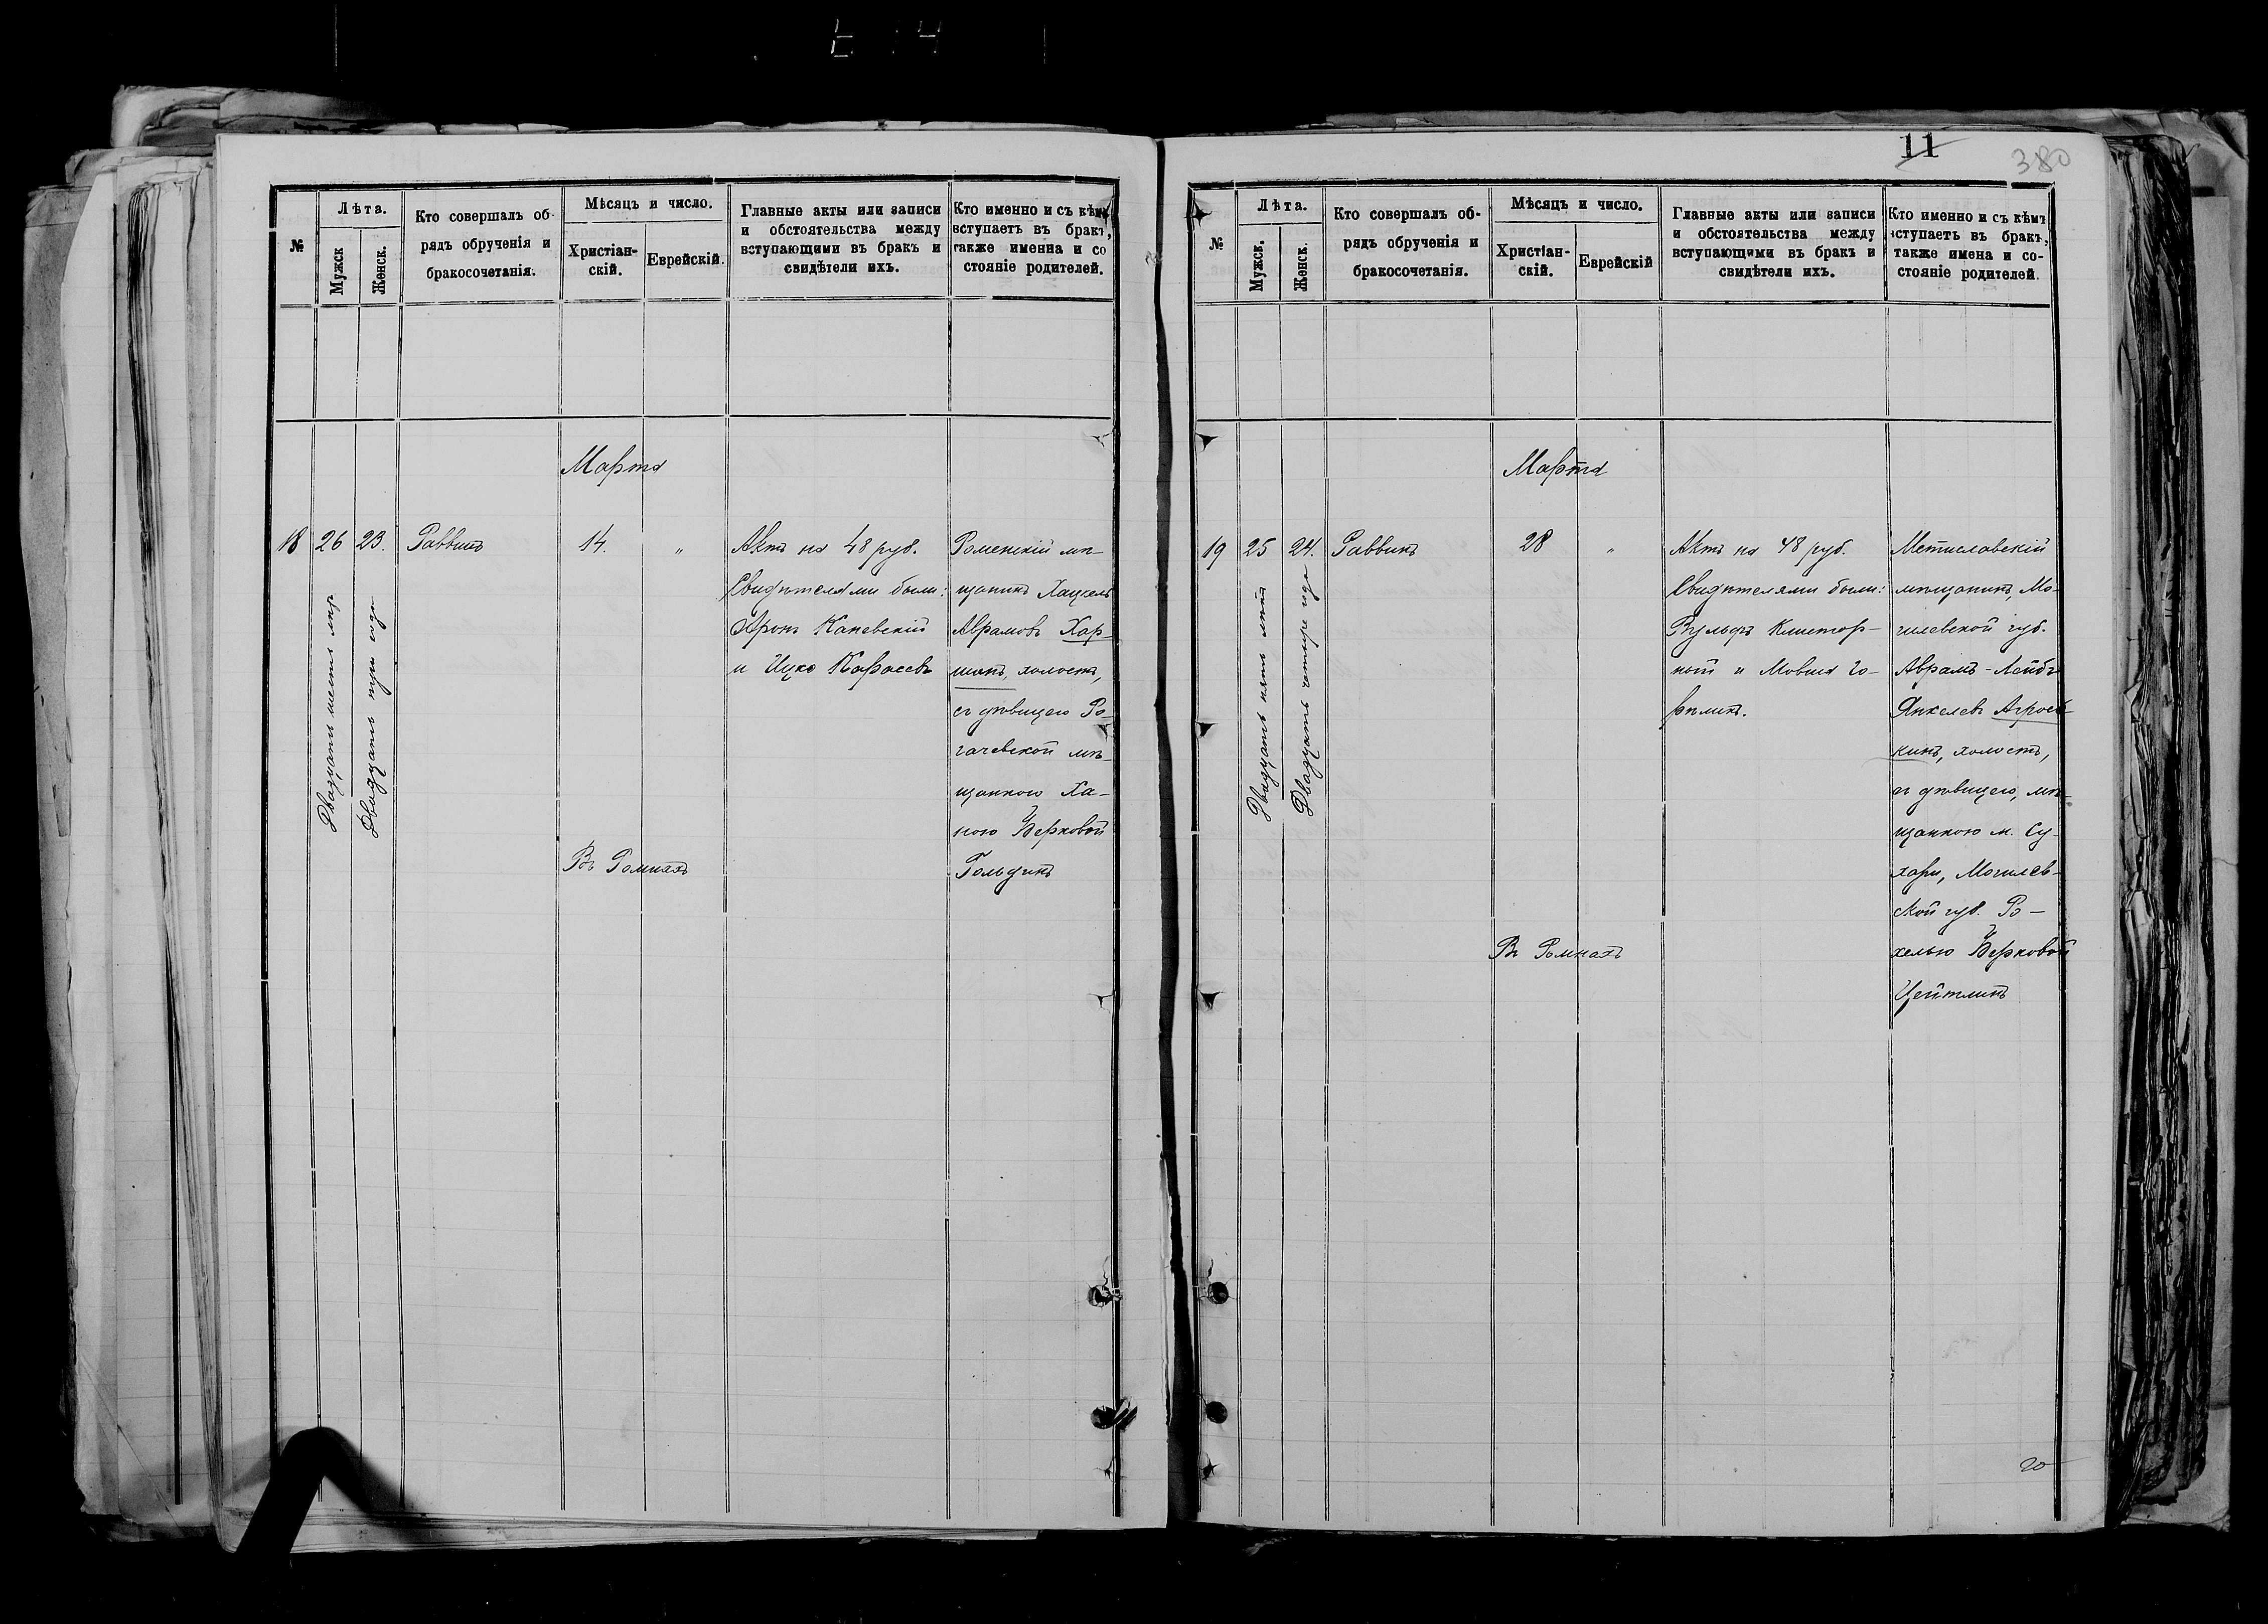 11
380
№
Лѣта.
Мужск
Женск.
Кто совершалъ об-
рядъ обрученія и
бракосочетанія.
Мѣсяцъ и число.
Христіан-
скій.
Еврейскій.
Главные акты или записи
и обстоятельства между
вступающими въ бракъ и
свидѣтели ихъ.
Кто именно и съ кѣмъ
вступаетъ въ бракъ,
также имена и со
стояніе родителей.
Марта
18
26
23.
Двадцать шесть лѣтъ
Двадцать три года
Раввинъ
14.
"
Въ Ромнахъ
Актъ на 48 руб.
Свидѣтелями были:
Аронъ Каневскій
и Ицко Карасевъ
Роменскій мѣ-
щанинъ Хацкель
Абрамовъ Хар-
шакъ, холостъ,
съ дѣвицею Ро-
гачевской мѣ-
щанкою Ха-
ною Берковой
Гольдинъ
№
Лѣта.
Мужск.
Женск.
Кто совершалъ об-
рядъ обрученія и
бракосочетанія.
Мѣсяцъ и число.
Христіан-
скій.
Еврейскій
Главные акты или записи
и обстоятельства между
вступающими въ бракъ и
свидѣтели ихъ.
Кто именно и съ кѣмъ
вступаетъ въ бракъ,
также имена и со-
стояніе родителей.
Марта
19
25
24.
Двадцать пять лѣтъ
Двадцать четыре года
Раввинъ
28
"
Въ Ромнахъ
Актъ на 48 руб.
Свидѣтелями были:
Вульфъ
и Мовша Го-
рѣликъ.
Мстиславскій
мѣщанинъ, Мо-
гилевской губ.
Абрамъ-Лейбъ
Янкелевъ Агрос-
кинъ, холостъ,
съ дѣвицею, мѣ-
щанкою м. Су-
хари, Могилев-
ской губ. Ро-
хелью Берковой
Цейтлинъ
20